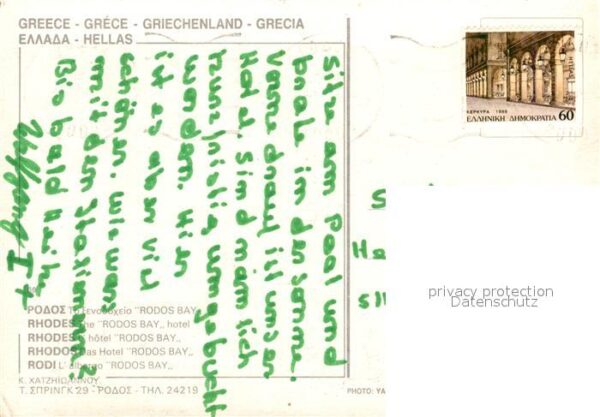 GREECE - GRÉCE - GRIECHENLAND - GRECIA
ΕΛΛΑΔΑ - HELLAS
Sitze am Pool und
brate in der Sonne.
Vorne drauf ist unser
Hotel. Sind nämlich
umgebucht
worden. Hier
ist es aber viel
schöner. Wie war's
mit den Italienern?
Bis bald
ΡΟΔΟΣ Το ξενοδοχείο "RODOS BAY,,
RHODES The "RODOS BAY,, hotel
RHODES L' hôtel "RODOS BAY,,
RHODOS Das Hotel "RODOS BAY,,
RODI L' albergo "RODOS BAY,,
Κ. ΧΑΤΖΗΙΩΑΝΝΟΥ
Τ. ΣΠΡΙΝΓΚ 29 - ΡΟΔΟΣ - ΤΗΛ. 24219
PHOTO: YA
ΚΕΡΚΥΡΑ 1988
ΕΛΛΗΝΙΚΗ ΔΗΜΟΚΡΑΤΙΑ 60
privacy protection
Datenschutz